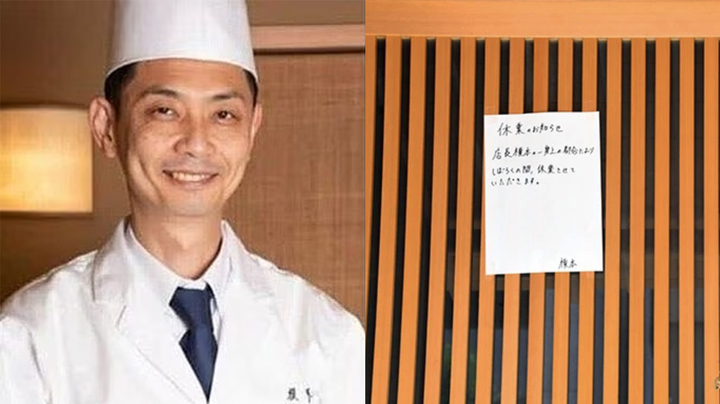 休業のお知らせ
店長榎本の一身上の都合により
しばらくの間、休業とさせて
いただきます。
榎本